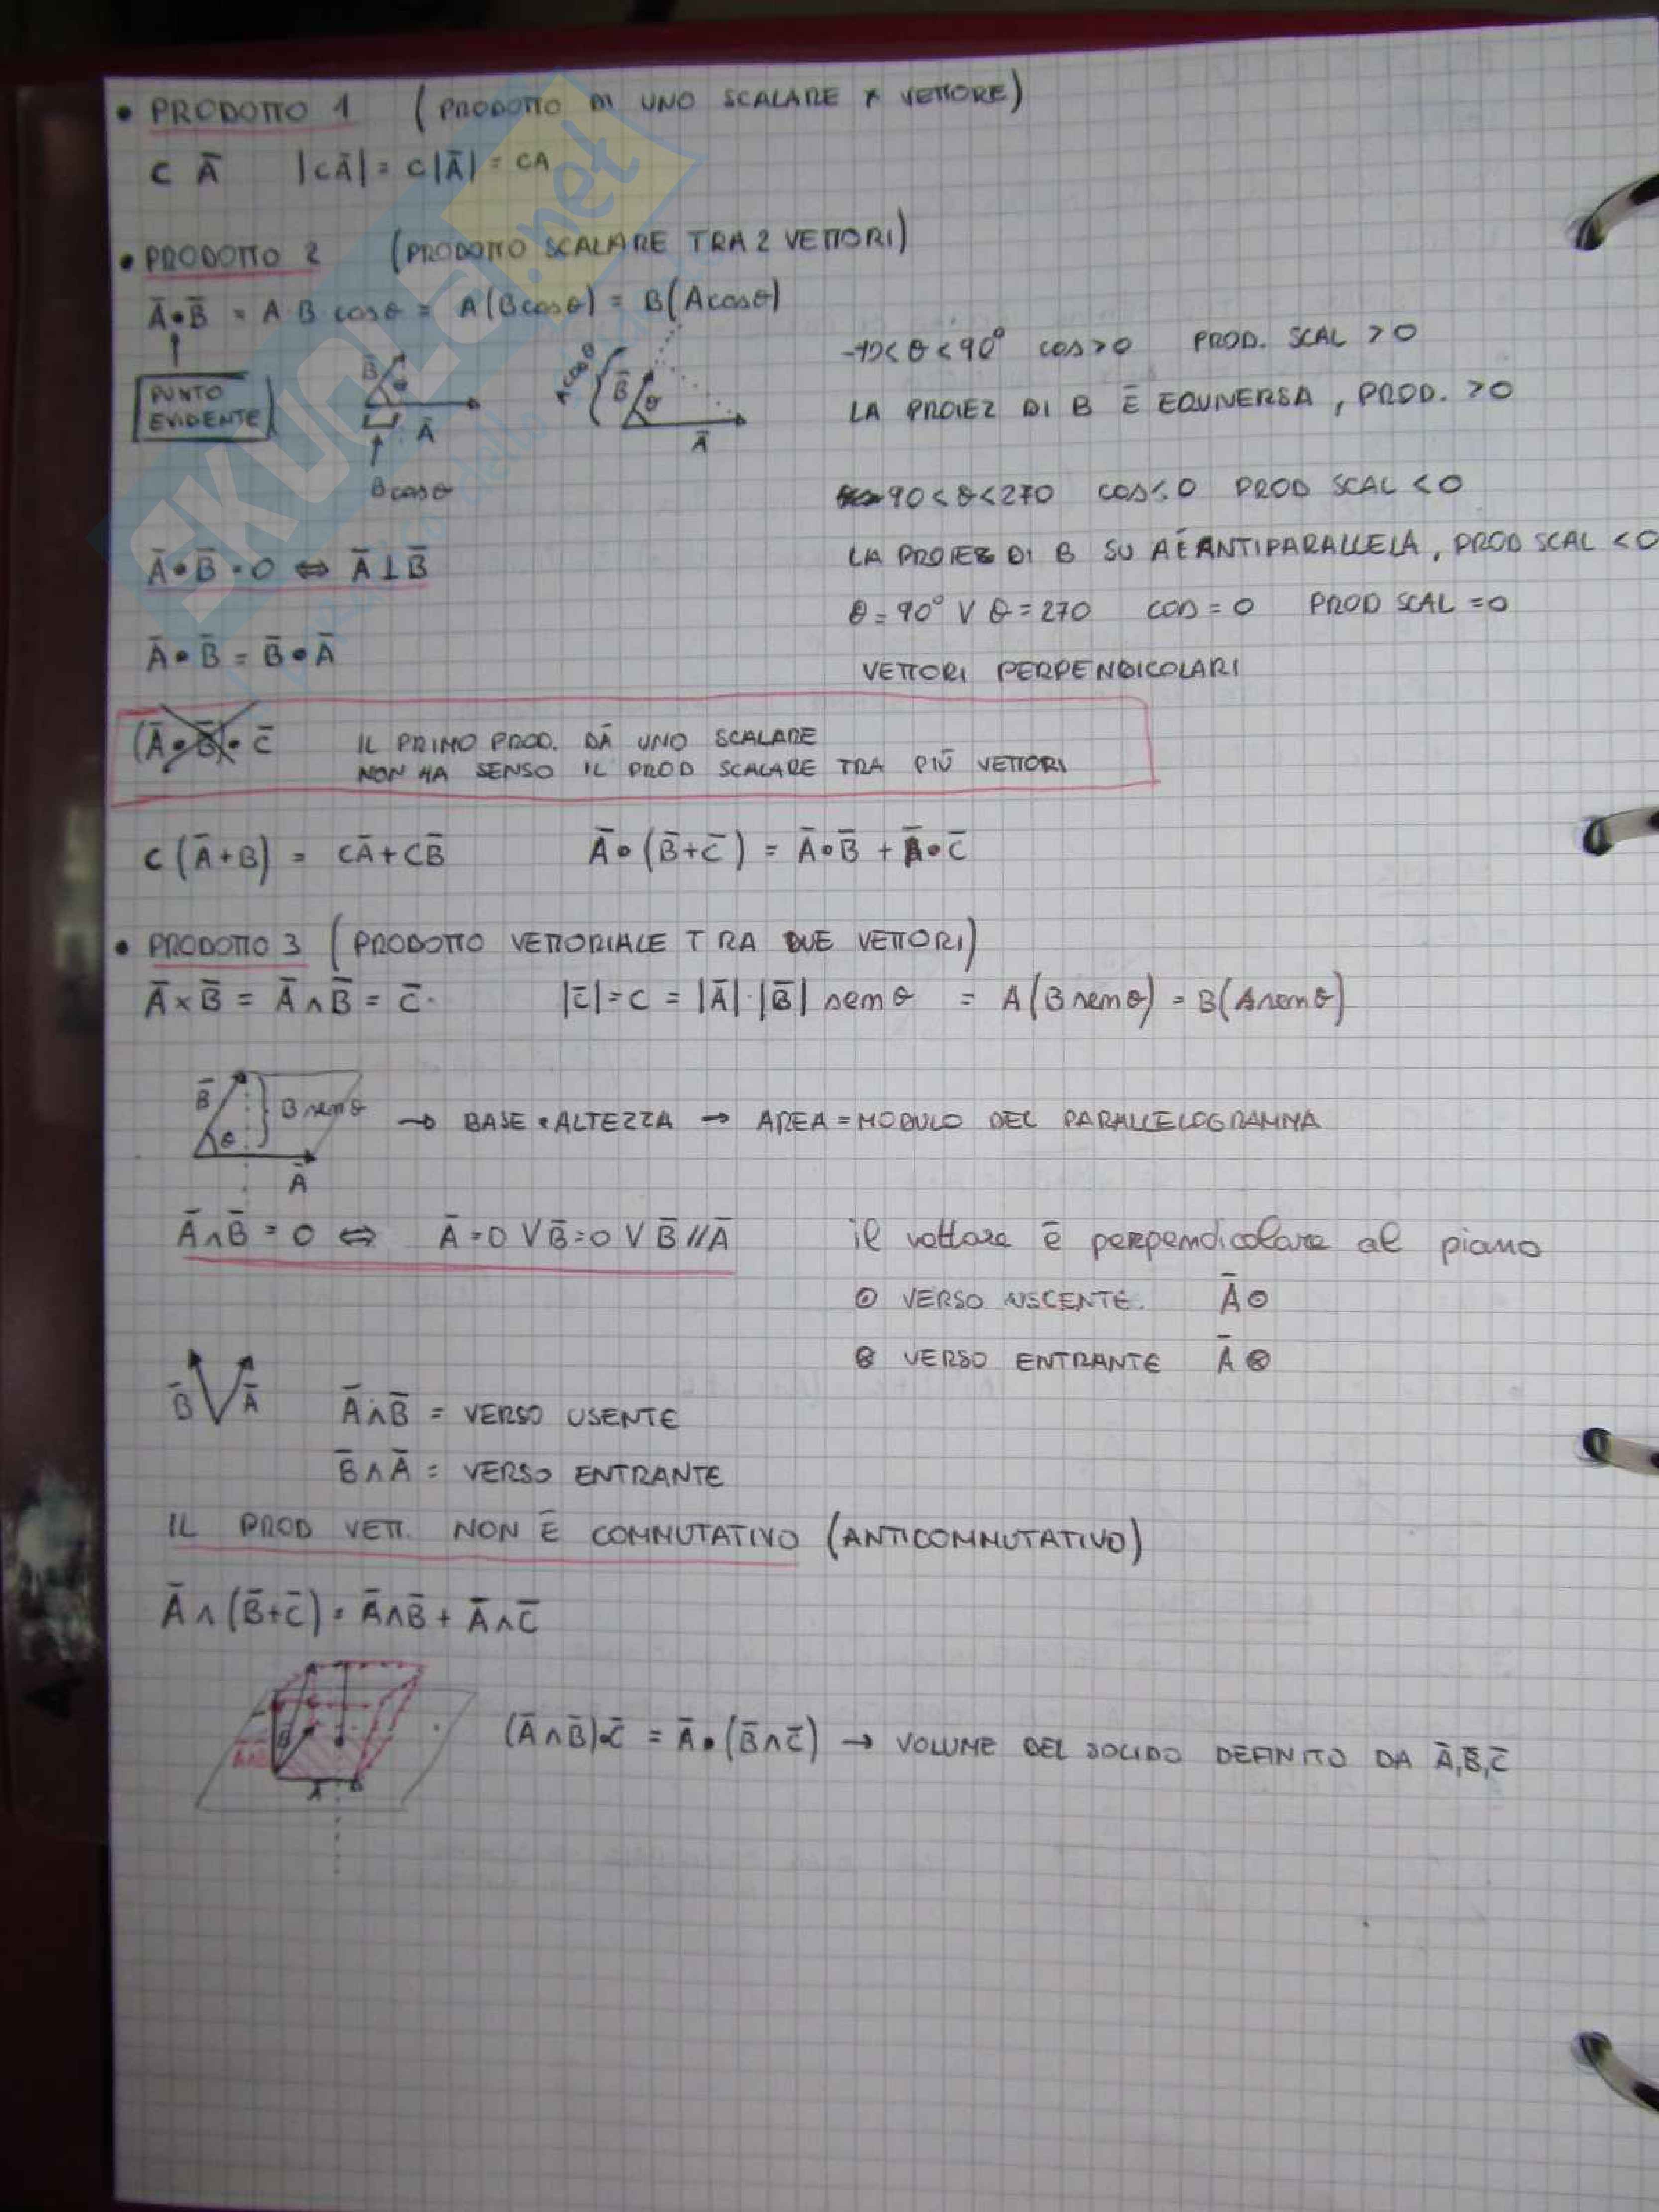 • PRODOTTO 1 (PRODOTTO DI UNO SCALARE × VETTORE)
C Ā |CĀ| = C|Ā| = CA
• PRODOTTO 2 (PRODOTTO SCALARE TRA 2 VETTORI)
Ā•B̄ = A·B cosθ = A(Bcosθ) = B(Acosθ)
PUNTO
EVIDENTE
B̄ θ
Ā
Bcosθ
Acosθ
B̄ θ
Ā
-90<θ<90° cos>0 PROD. SCAL >0
LA PROIEZ DI B È EQUIVERSA, PROD. >0
90<θ<270 cos<0 PROD SCAL <0
LA PROIEZ DI B SU A È ANTIPARALLELA, PROD SCAL <0
θ=90° V θ=270 cos=0 PROD SCAL =0
VETTORI PERPENDICOLARI
Ā•B̄=0 ⇔ Ā⊥B̄
Ā•B̄ = B̄•Ā
(Ā•B̄)•C̄ IL PRIMO PROD. DÀ UNO SCALARE
NON HA SENSO IL PROD SCALARE TRA PIÙ VETTORI
C(Ā+B) = CĀ+CB̄ Ā•(B̄+C̄) = Ā•B̄ + Ā•C̄
• PRODOTTO 3 (PRODOTTO VETTORIALE TRA DUE VETTORI)
Ā×B̄ = Ā∧B̄ = C̄. |C̄|=C = |Ā|·|B̄| senθ = A(Bsenθ) = B(Asenθ)
B̄ θ Bsenθ → BASE • ALTEZZA → AREA = MODULO DEL PARALLELOGRAMMA
Ā
Ā∧B̄ = 0 ⇔ Ā=0 V B̄=0 V B̄//Ā
il vettore è perpendicolare al piano
⊙ VERSO USCENTE. Ā⊙
⊗ VERSO ENTRANTE Ā⊗
B̄ Ā
Ā∧B̄ = VERSO USENTE
B̄∧Ā = VERSO ENTRANTE
IL PROD VETT. NON È COMMUTATIVO (ANTICOMMUTATIVO)
Ā∧(B̄+C̄) = Ā∧B̄ + Ā∧C̄
(Ā∧B̄)•C̄ = Ā•(B̄∧C̄) → VOLUME DEL SOLIDO DEFINITO DA Ā,B̄,C̄
SKUOLA.net